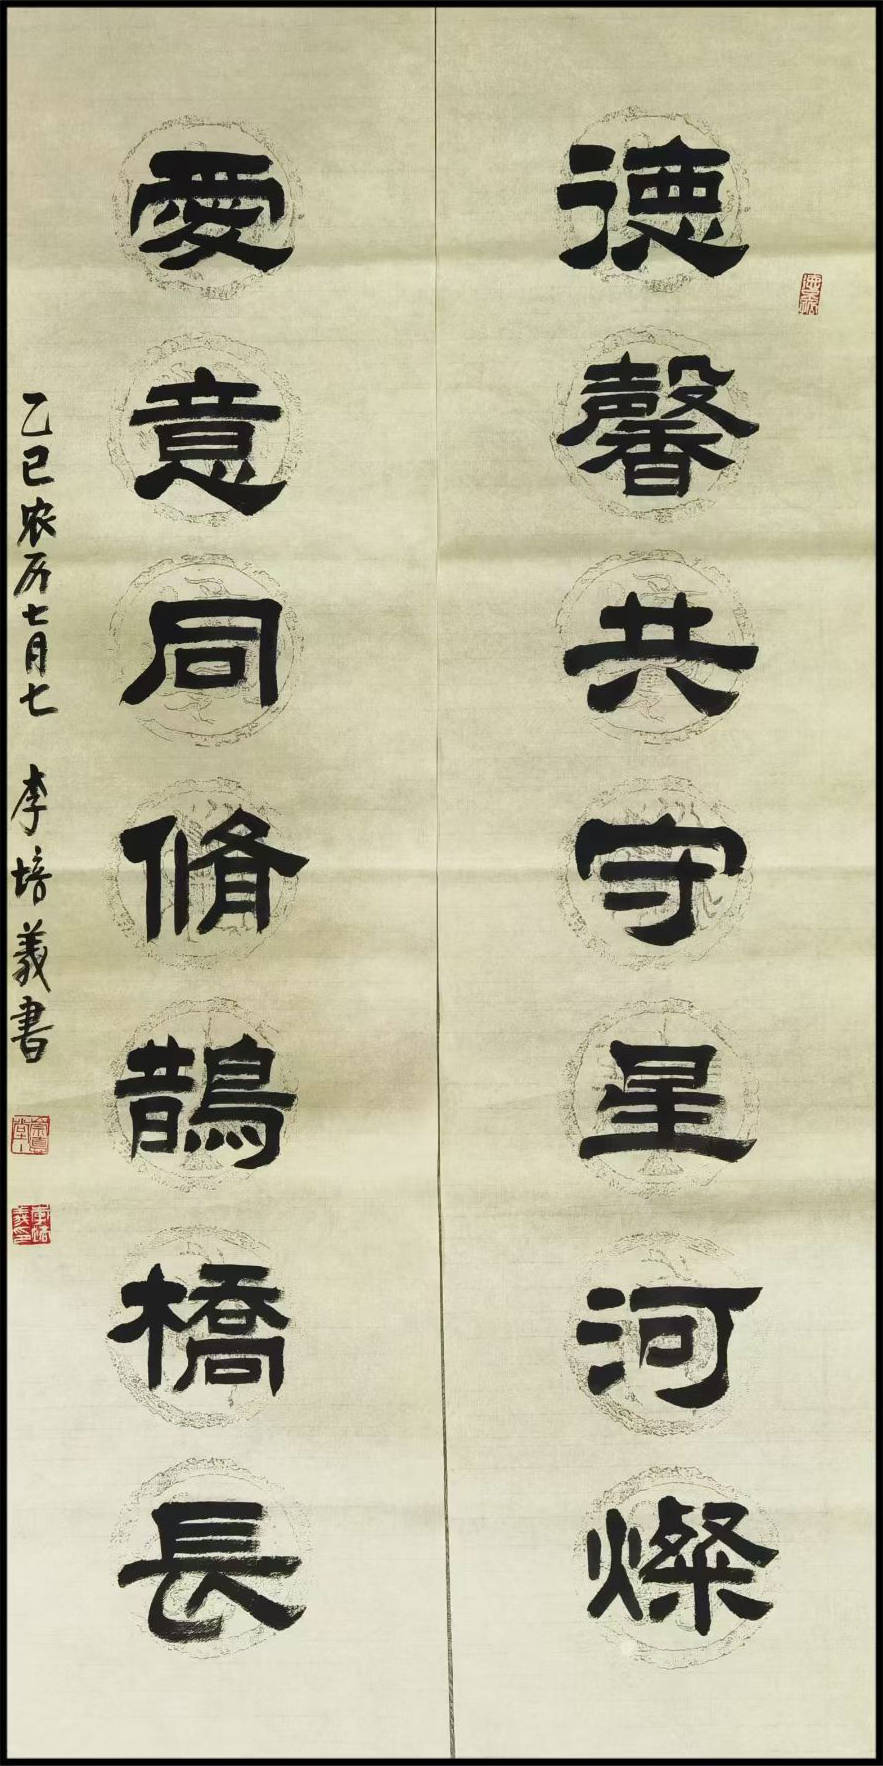 德馨共守星河燦
愛意同脩鵲橋長
乙巳农历七月七 李培義書